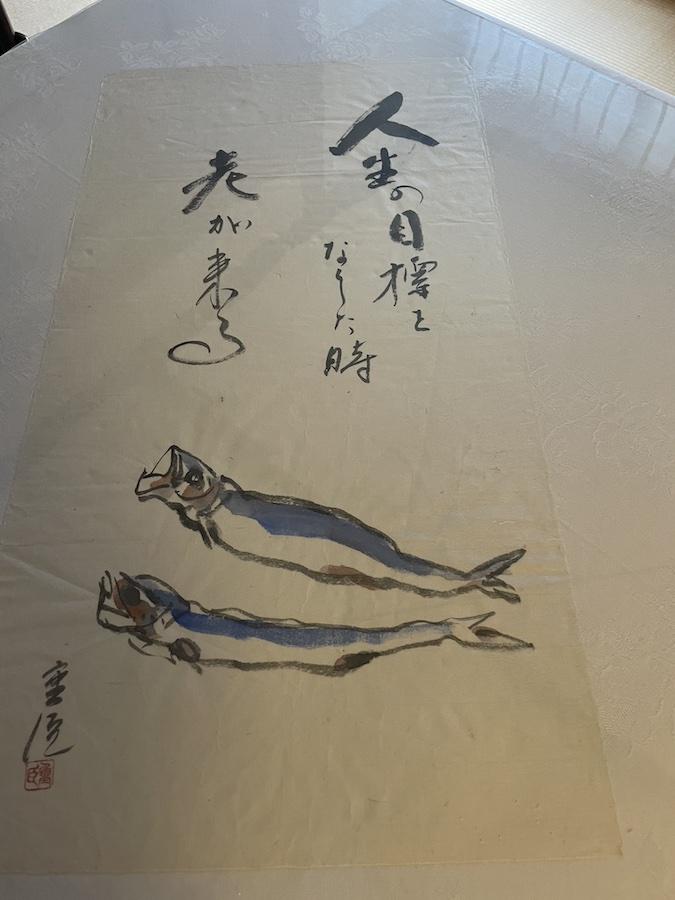 人生の目標を
なくした時
老が来る